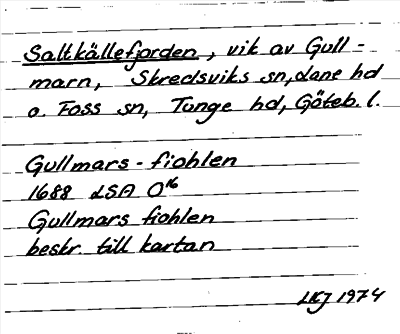 Saltkällefjorden, vik av Gull-
marn, Skredsviks sn, Lane hd
o. Foss sn, Tunge hd, Göteb. l.
Gullmars-fiohlen
1688 LSA O16
Gullmars fiohlen
beskr. till kartan
LKJ 1974